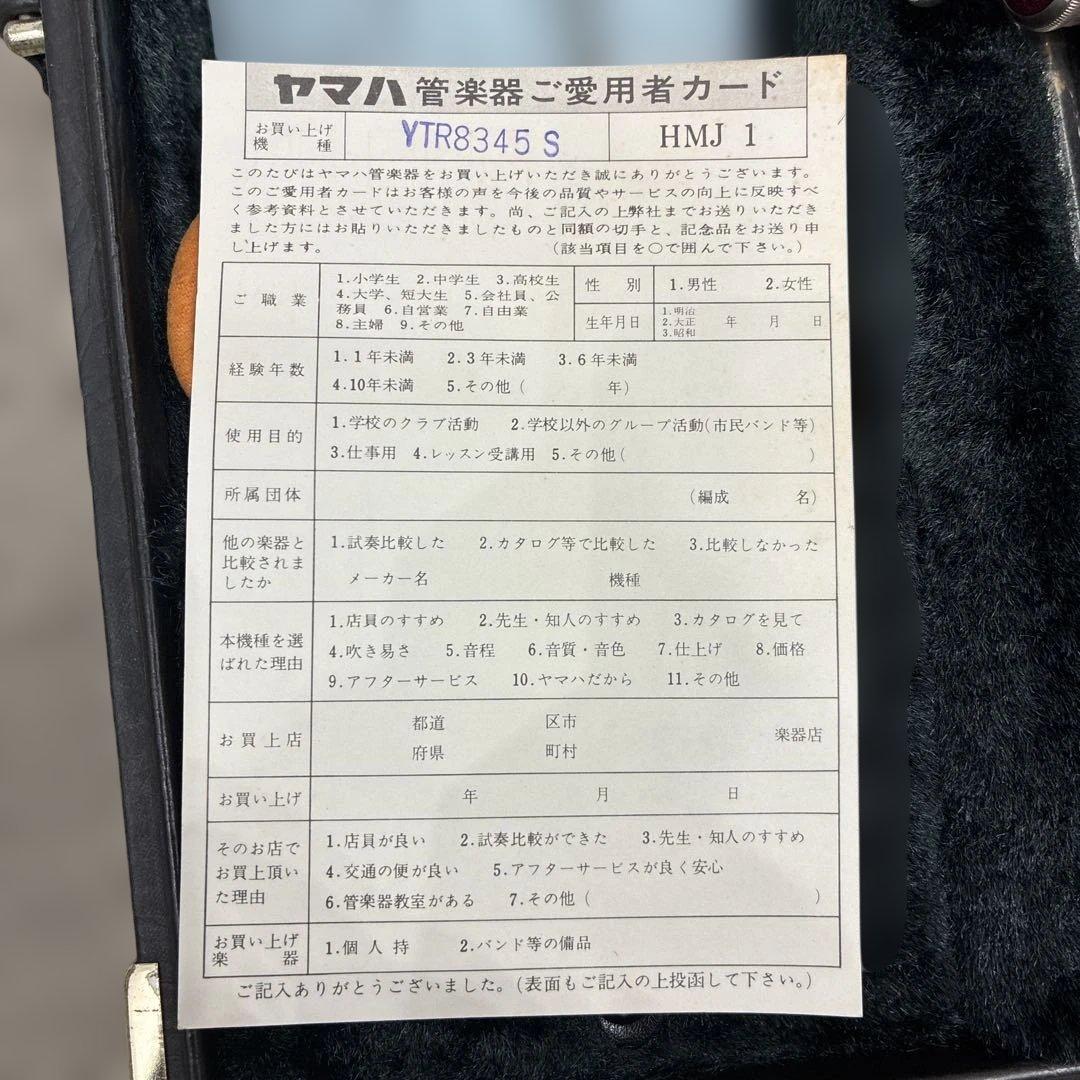 ヤマハ 管楽器ご愛用者カード
お買い上げ機種 YTR8345 S HMJ 1
このたびはヤマハ管楽器をお買い上げいただき誠にありがとうございます。
このご愛用者カードはお客様の声を今後の品質やサービスの向上に反映すべ
く参考資料とさせていただきます。尚、ご記入の上弊社までお送りいただき
ました方にはお貼りいただきましたものと同額の切手と、記念品をお送り申
し上げます。 (該当項目を○で囲んで下さい。)
ご職業
1.小学生 2.中学生 3.高校生
4.大学、短大生 5.会社員、公
務員 6.自営業 7.自由業
8.主婦 9.その他
性別 1.男性 2.女性
生年月日
1.明治
2.大正 年 月 日
3.昭和
経験年数
1.1年未満 2.3年未満 3.6年未満
4.10年未満 5.その他( 年)
使用目的
1.学校のクラブ活動 2.学校以外のグループ活動(市民バンド等)
3.仕事用 4.レッスン受講用 5.その他( )
所属団体 (編成 名)
他の楽器と
比較されま
したか
1.試奏比較した 2.カタログ等で比較した 3.比較しなかった
メーカー名 機種
本機種を選
ばれた理由
1.店員のすすめ 2.先生・知人のすすめ 3.カタログを見て
4.吹き易さ 5.音程 6.音質・音色 7.仕上げ 8.価格
9.アフターサービス 10.ヤマハだから 11.その他
お買上店
都道 区市
府県 町村 楽器店
お買い上げ 年 月 日
そのお店で
お買上頂い
た理由
1.店員が良い 2.試奏比較ができた 3.先生・知人のすすめ
4.交通の便が良い 5.アフターサービスが良く安心
6.管楽器教室がある 7.その他( )
お買い上げ
楽器
1.個人持 2.バンド等の備品
ご記入ありがとうございました。(表面もご記入の上投函して下さい。)